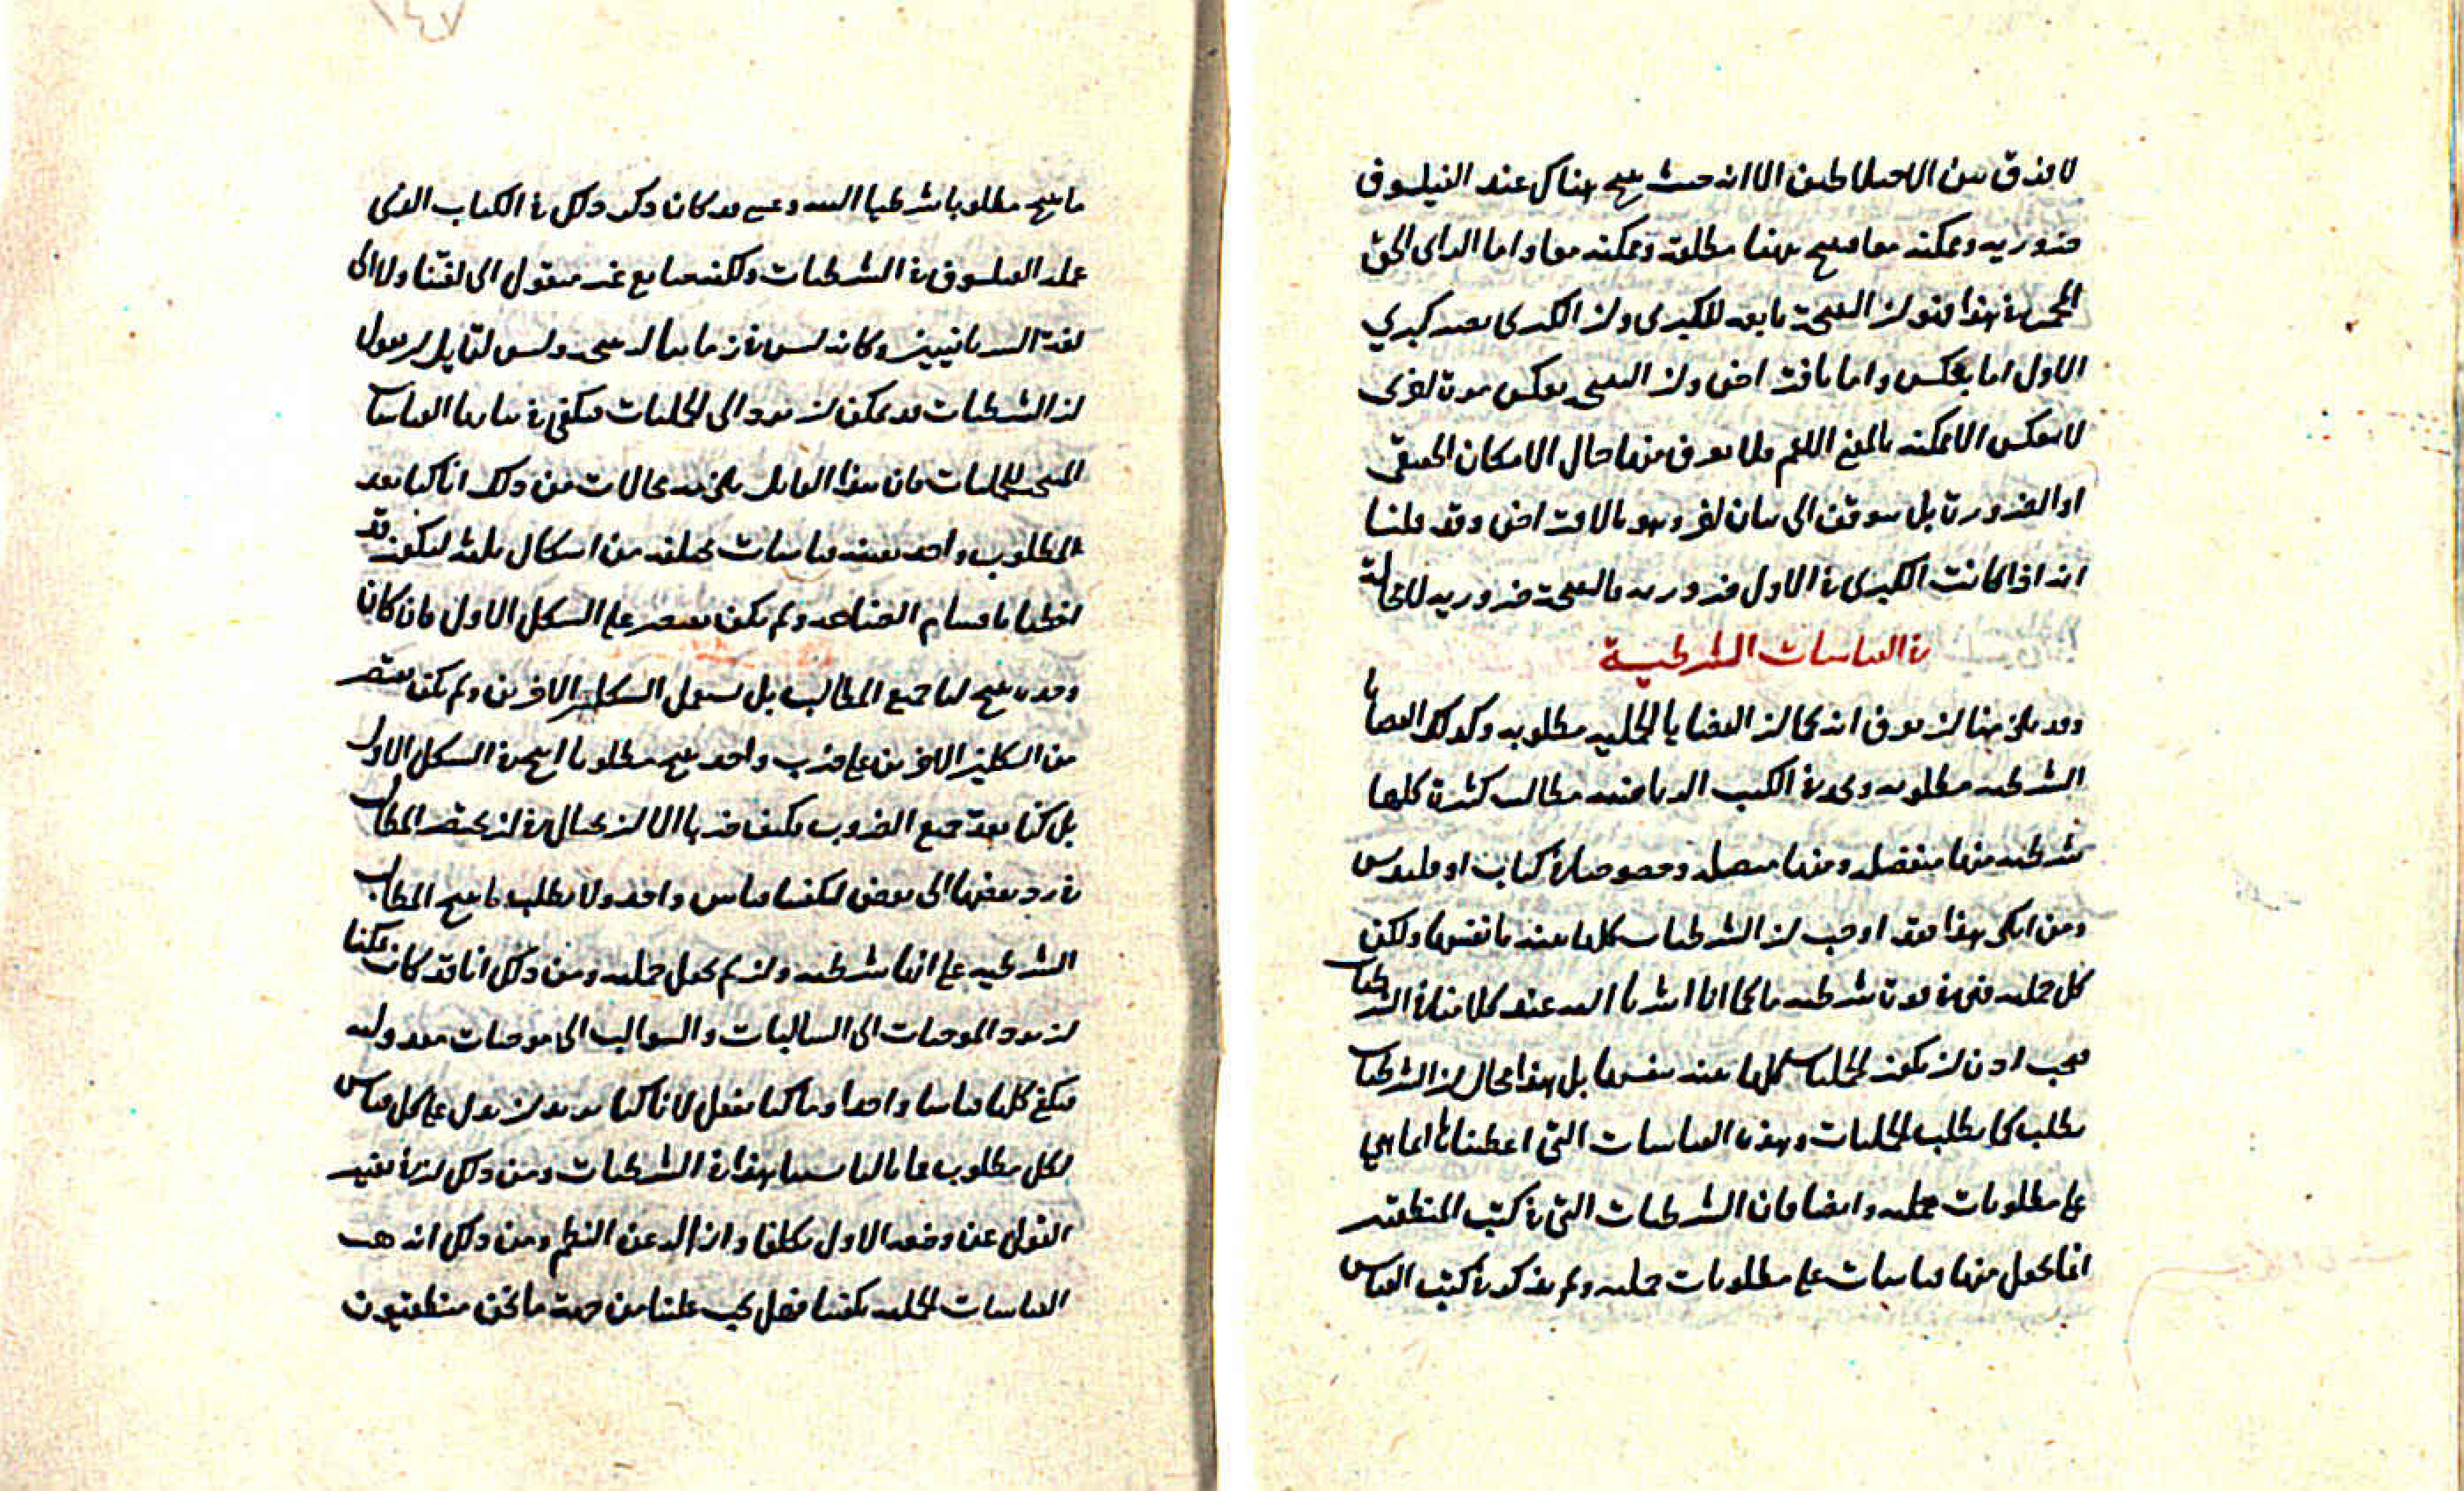 لا فرق بين الاختلاطين الا انه حيث ينتج هناك عند الفيلسوف
ضرورية وممكنة معا فينتج ههنا مطلقة وممكنة معا واما الراى الحق
فى هذا فهو ان النتيجة تابعة للكبرى وان الكبرى تصير كبري
الاول اما بعكس واما بافتراض وان النتيجة بعكس مرة اخرى
لا بعكس الا ممكنة بالمعنى الاعم ولا يعرف منها حال الامكان الحقيقى
او الضرورة بل يتوقف الى بيان اخر وهو بالافتراض وقد قلنا
انه اذا كانت الكبرى فى الاول ضرورية فالنتيجة ضرورية لا محالة
فى القياسات الشرطية
وقد بقى هنا ان نعرف انه كما ان القضايا الحملية مطلوبة وكذلك القضايا
الشرطية مطلوبة وتجد فى الكتب الرياضية مطالب كثيرة كلها
شرطية منها منفصلة ومنها متصلة وخصوصا فى كتاب اوقليدس
ومن انكر هذا فقد اوجب ان الشرطيات كلها بينة بانفسها ولكن
كل حملية فهى فى قوة شرطية ما كما انا اشرنا اليه عند كلامنا فى الشرطيات
فيجب اذن ان تكون الحمليات كلها بينة بنفسها بل هذا محال فان الشرطيات
تطلب كما تطلب الحمليات وهذه القياسات التى اعطيناها انما هي
على مطلوبات حملية وايضا فان الشرطيات التى فى كتب المنطقيين
انما تجعل منها قياسات على مطلوبات حملية ولم يذكر فى كتب القياس
ما ينتج مطلوبا شرطيا البتة وعسى قد كان ذكر ذلك فى الكتاب الذى
عمله الفيلسوف فى الشرطيات ولكنه ضايع غير منقول الى لغتنا ولا الى
لغة السريانيين وكانه ليس فى زماننا له نسخة وليس لقايل ان يقول
ان الشرطيات قد يمكن ان ترد الى الحمليات فيكفى فى بيانها القياسات
المنتجة للحمليات فان هذا القايل يلزمه محالات من ذلك انا كنا نعد
لمطلوب واحد بعينه قياسات مختلفة من اشكال ثلثة ليكون قد
احطنا باقسام الصناعة ولم نكن نقتصر على الشكل الاول فان كان
وحده ينتج لنا جميع المطالب بل نستعمل الشكلين الاخرين ولم نكن نقتصر
من الشكلين الاخرين على ضرب واحد ينتج مطلوبا انتج فى الشكل الاول
بل كنا نعد جميع الضروب فكيف ضربنا الا ان نحتال فى ان نختصر المطالب
فى رد بعضها الى بعض ليكفينا قياس واحد ولا نطلب ما ينتج المطالب
الشرطية على انها شرطية وان لم تجعل حملية ومن ذلك انا قد كان يمكننا
ان نرد الموجبات الى السالبات والسوالب الى موجبات معدولة
فيكفى كلها قياسا واحدا وما كنا نفعل لانا كنا نريد ان ندل على كل قياس
لكل مطلوب فما بالنا نسينا هذا فى الشرطيات ومن ذلك ان فى تغيير
القول عن وضعه الاول تكلفا وازالة عن النظم ومن ذلك انه هب
القياسات الحملية تكفينا فهل يجب علينا من جهة ما نحن منطقيون